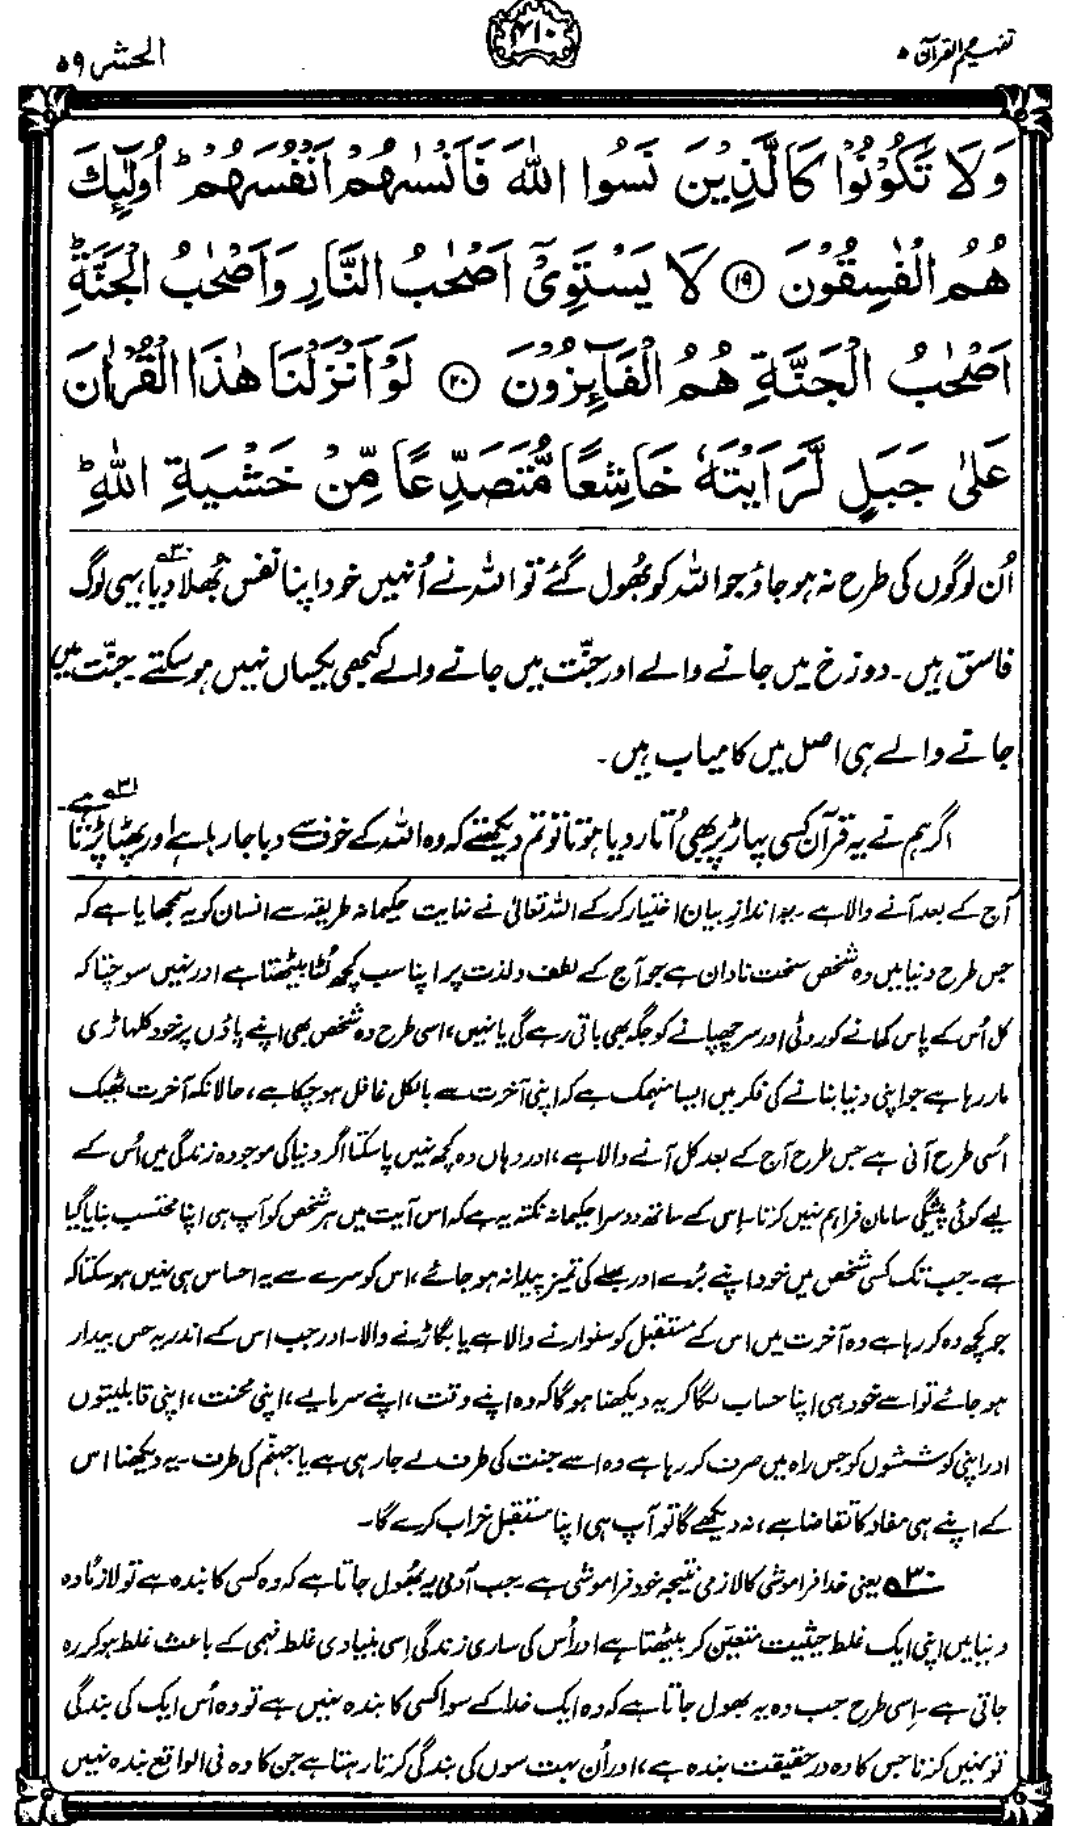 تفہیم القرآن ۵
۴۱۰
الحشر ۵۹
وَلَا تَكُوْنُوْا كَالَّذِيْنَ نَسُوا اللّٰهَ فَاَنْسٰىهُمْ اَنْفُسَهُمْ ؕ اُولٰٓئِكَ
هُمُ الْفٰسِقُوْنَ ۝۱۹ لَا يَسْتَوِيْۤ اَصْحٰبُ النَّارِ وَاَصْحٰبُ الْجَنَّةِ ؕ
اَصْحٰبُ الْجَنَّةِ هُمُ الْفَآئِزُوْنَ ۝۲۰ لَوْ اَنْزَلْنَا هٰذَا الْقُرْاٰنَ
عَلٰى جَبَلٍ لَّرَاَيْتَهٗ خَاشِعًا مُّتَصَدِّعًا مِّنْ خَشْيَةِ اللّٰهِ ؕ
اُن لوگوں کی طرح نہ ہو جاؤ جو اللہ کو بھول گئے تو اللہ نے اُنہیں خود اپنا نفس بھلا دیا،۳۰ یہی لوگ
فاسق ہیں۔ دوزخ میں جانے والے اور جنّت میں جانے والے کبھی یکساں نہیں ہو سکتے۔ جنّت میں
جانے والے ہی اصل میں کامیاب ہیں۔
اگر ہم نے یہ قرآن کسی پہاڑ پر بھی اُتار دیا ہوتا تو تم دیکھتے کہ وہ اللہ کے خوف سے دبا جا رہا ہے اور پھٹا پڑتا ہے۔۳۱
آج کے بعد آنے والا ہے۔ یہ انداز بیان اختیار کر کے اللہ تعالیٰ نے نہایت حکیمانہ طریقہ سے انسان کو یہ سمجھایا ہے کہ
جس طرح دنیا میں وہ شخص سخت نادان ہے جو آج کے لطف و لذت پر اپنا سب کچھ لُٹا بیٹھتا ہے اور نہیں سوچتا کہ
کل اُس کے پاس کھانے کو روٹی اور سر چھپانے کو جگہ بھی باقی رہے گی یا نہیں، اسی طرح وہ شخص بھی اپنے پاؤں پر خود کلہاڑی
مار رہا ہے جو اپنی دنیا بنانے کی فکر میں ایسا منہمک ہے کہ اپنی آخرت سے بالکل غافل ہو چکا ہے، حالانکہ آخرت ٹھیک
اُسی طرح آنی ہے جس طرح آج کے بعد کل آنے والا ہے، اور وہاں وہ کچھ نہیں پا سکتا اگر دنیا کی موجودہ زندگی میں اُس کے
لیے کوئی پیشگی سامان فراہم نہیں کرتا۔ اِس کے ساتھ دوسرا حکیمانہ نکتہ یہ ہے کہ اس آیت میں ہر شخص کو آپ ہی اپنا محتسب بنایا گیا
ہے۔ جب تک کسی شخص میں خود اپنے بُرے اور بھلے کی تمیز پیدا نہ ہو جائے، اس کو سرے سے یہ احساس ہی نہیں ہو سکتا کہ
جو کچھ وہ کر رہا ہے وہ آخرت میں اس کے مستقبل کو سنوارنے والا ہے یا بگاڑنے والا۔ اور جب اس کے اندر یہ حس بیدار
ہو جائے تو اسے خود ہی اپنا حساب لگا کر یہ دیکھنا ہوگا کہ وہ اپنے وقت، اپنے سرمایے، اپنی محنت، اپنی قابلیتوں
اور اپنی کوششوں کو جس راہ میں صرف کر رہا ہے وہ اسے جنت کی طرف لے جا رہی ہے یا جہنّم کی طرف۔ یہ دیکھنا اس
کے اپنے ہی مفاد کا تقاضا ہے، نہ دیکھے گا تو آپ ہی اپنا مستقبل خراب کرے گا۔
۳۰ یعنی خدا فراموشی کا لازمی نتیجہ خود فراموشی ہے۔ جب آدمی یہ بُھول جاتا ہے کہ وہ کسی کا بندہ ہے تو لازمًا وہ
دنیا میں اپنی ایک غلط حیثیت متعیّن کر بیٹھتا ہے اور اُس کی ساری زندگی اِسی بنیادی غلط فہمی کے باعث غلط ہو کر رہ
جاتی ہے۔ اِسی طرح جب وہ یہ بھول جاتا ہے کہ وہ ایک خدا کے سوا کسی کا بندہ نہیں ہے تو وہ اُس ایک کی بندگی
تو نہیں کرتا جس کا وہ درحقیقت بندہ ہے، اور اُن بہت سوں کی بندگی کرتا رہتا ہے جن کا وہ فی الواقع بندہ نہیں